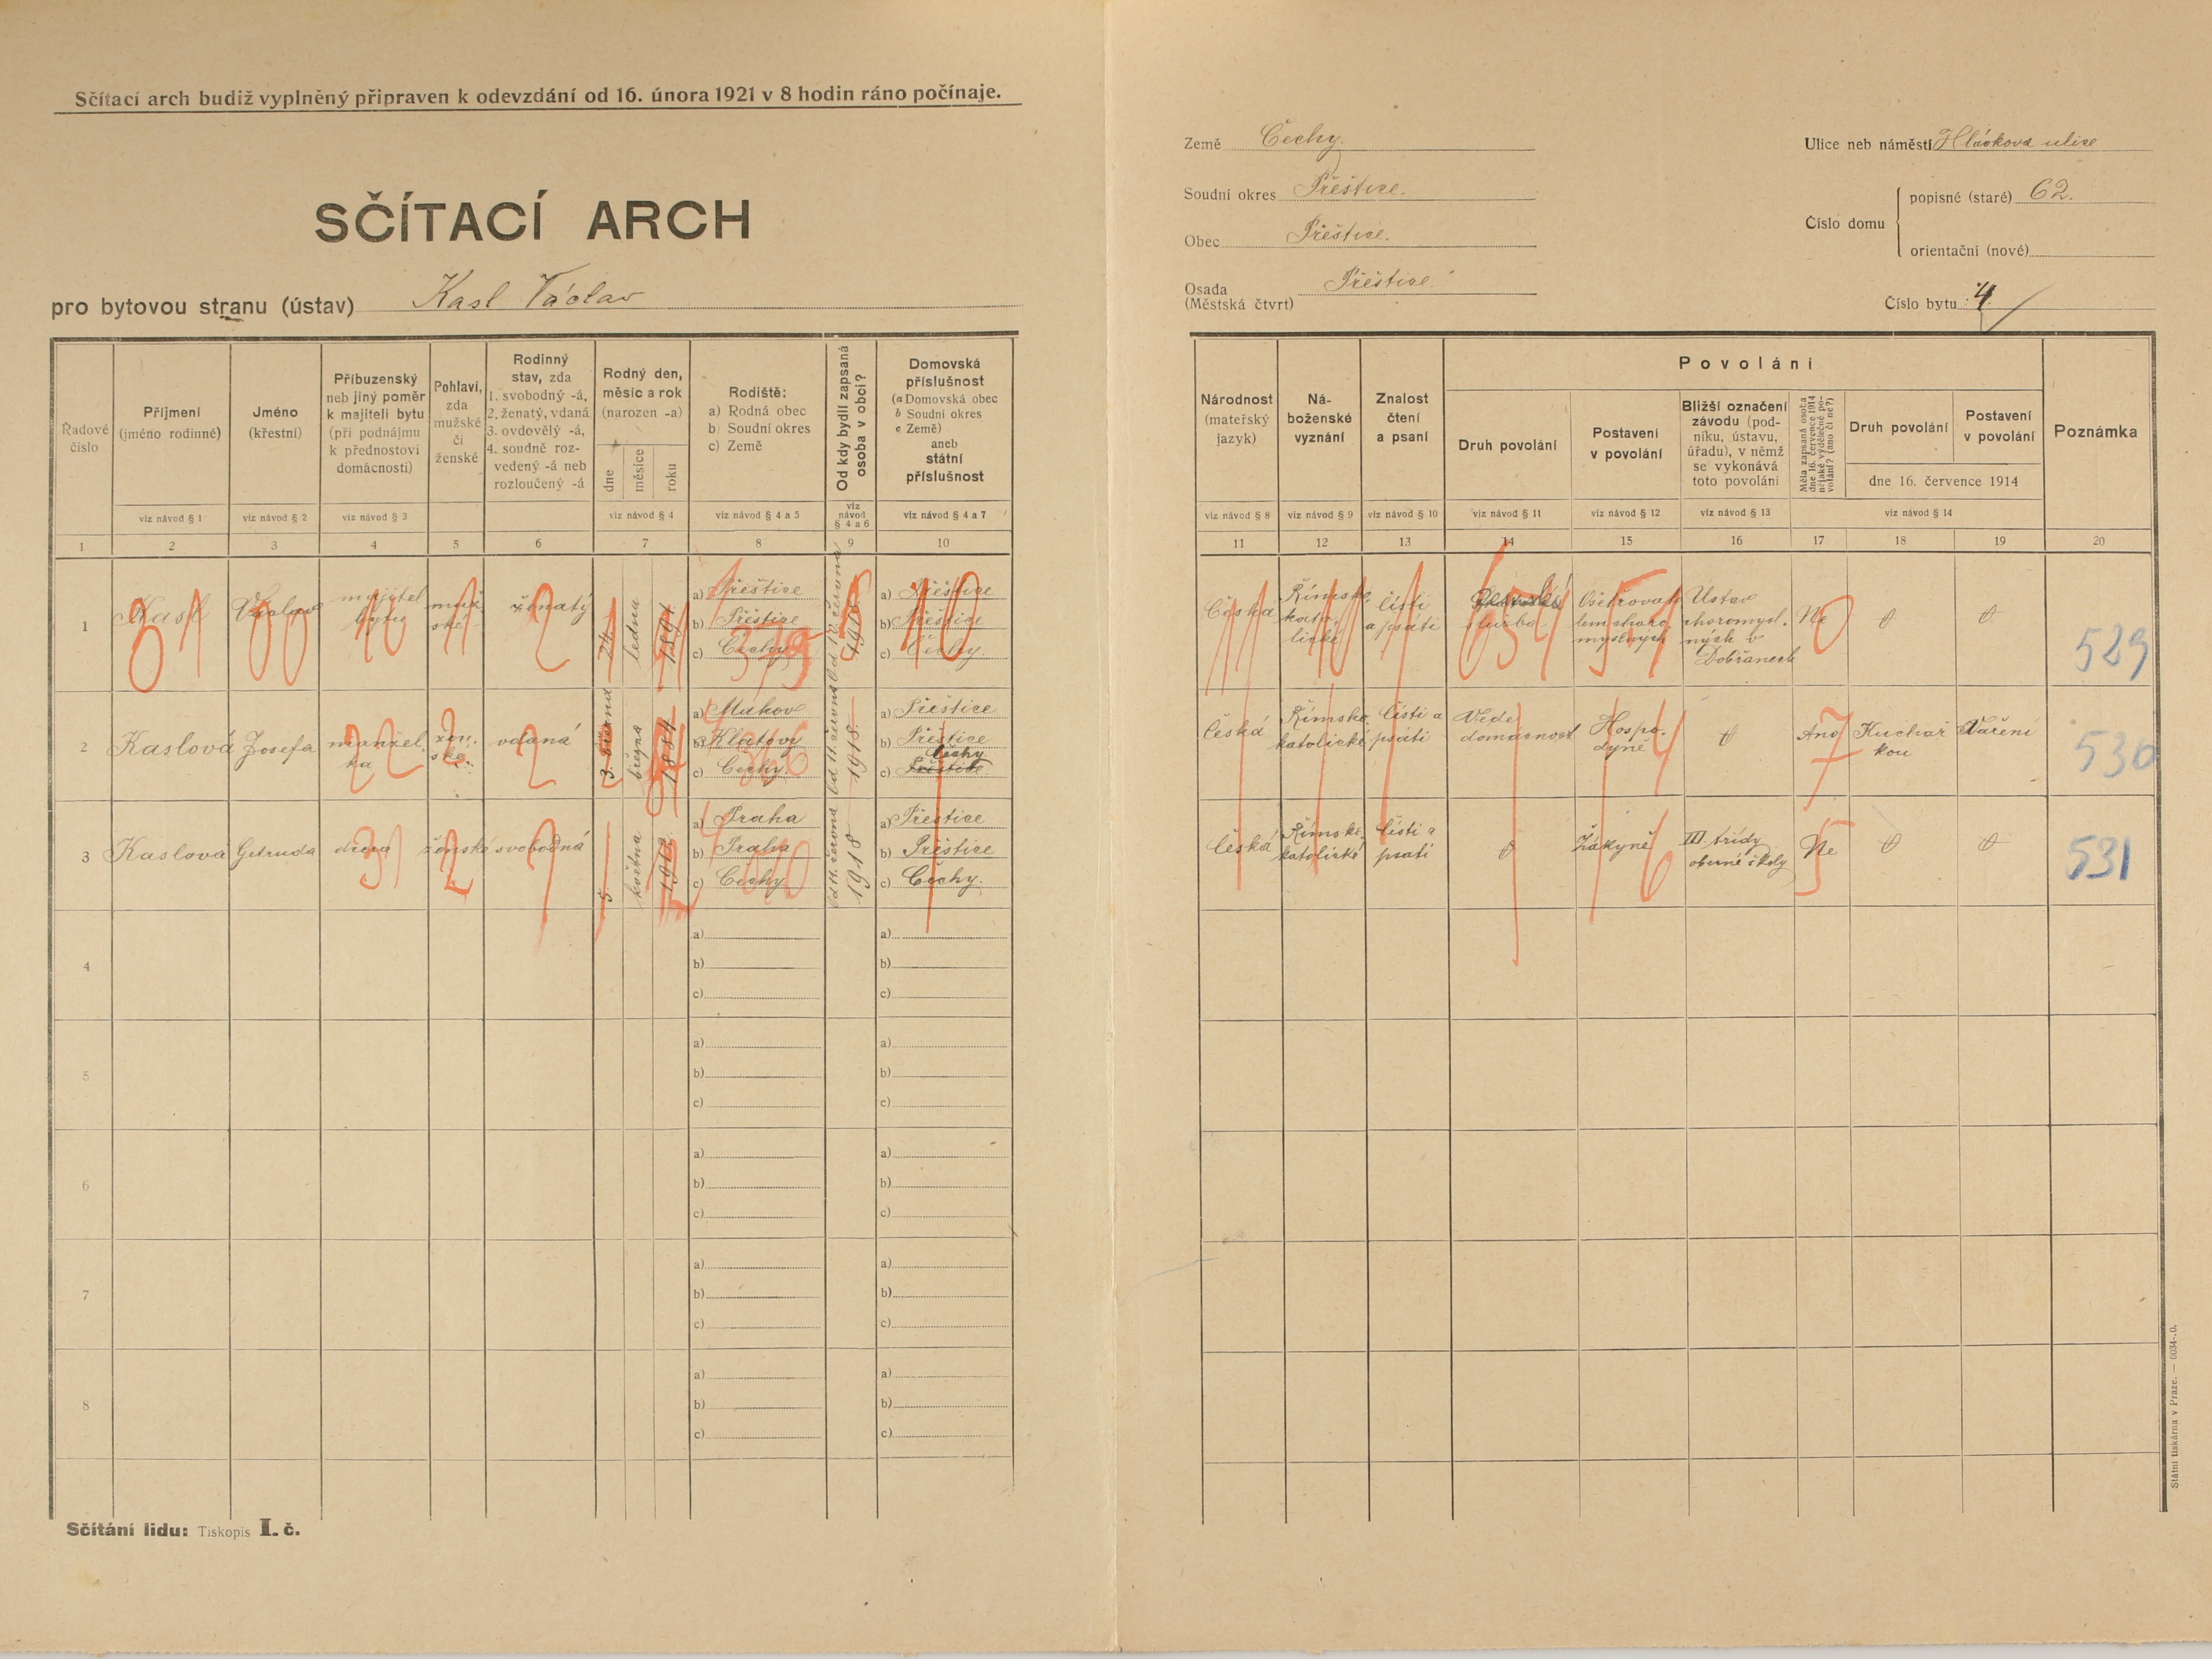 Sčítací arch budiž vyplněný připraven k odevzdání od 16. února 1921 v 8 hodin ráno počínaje.
SČÍTACÍ ARCH
pro bytovou stranu (ústav) Kasl Václav
Země Čechy.
Soudní okres Přeštice.
Obec Přeštice.
Osada Přeštice
(Městská čtvrt)
Ulice neb náměstí Hlávkova ulice
Číslo domu
popisné (staré) 62.
orientační (nové)
Číslo bytu 4.
Řadové číslo
Příjmení
(jméno rodinné)
Jméno
(křestní)
Příbuzenský
neb jiný poměr
k majiteli bytu
(při podnájmu
k přednostovi
domácnosti)
Pohlaví,
zda
mužské
či
ženské
Rodinný
stav, zda
1. svobodný -á,
2. ženatý, vdaná
3. ovdovělý -á,
4. soudně roz-
vedený -á neb
rozloučený -á
Rodný den,
měsíc a rok
(narozen -a)
dne
měsíce
roku
Rodiště:
a) Rodná obec
b) Soudní okres
c) Země
Od kdy bydlí zapsaná
osoba v obci?
Domovská
příslušnost
(a Domovská obec
b Soudní okres
c Země)
aneb
státní
příslušnost
viz návod § 1
viz návod § 2
viz návod § 3
viz návod § 4
viz návod § 4 a 5
viz
návod
§ 4 a 6
viz návod § 4 a 7
1 2 3 4 5 6 7 8 9 10
Národnost
(mateřský
jazyk)
Ná-
boženské
vyznání
Znalost
čtení
a psaní
Povolání
Druh povolání
Postavení
v povolání
Bližší označení
závodu (pod-
niku, ústavu,
úřadu), v němž
se vykonává
toto povolání
Měla zapsaná osoba
dne 16. července 1914
nějaké výdělečné po-
volání? (ano či ne?)
Druh povolání
Postavení
v povolání
dne 16. července 1914
Poznámka
viz návod § 8
viz návod § 9
viz návod § 10
viz návod § 11
viz návod § 12
viz návod § 13
viz návod § 14
11 12 13 14 15 16 17 18 19 20
1
Kasl
Václav
majitel
bytu
muž-
ské
ženatý
24.
ledna
1891
a) Přeštice
b) Přeštice
c) Čechy
1918
a) Přeštice
b) Přeštice
c) Čechy.
Česká
Římsko
kato-
lické
čísti
a psáti
služba
Ošetřovatel
choro
myslných
Ústav
choromysl.
ných v
Dobřanech
Ne
529
2
Kaslová
Josefa
manžel.
ka
žen.
ské.
vdaná
3.
března
1884
a)
b) Klatovy
c) Čechy.
Od 11. června
1918
a) Přeštice
b) Přeštice
Čechy
c) Přeštice
česká
Římsko
katolické
čísti a
psáti
Vede
domácnost
Hospo-
dyně
Ano
Kuchař
kou
Vaření
530
3
Kaslová
Getruda
dcera
ženské
svobodná
5.
května
1912
a) Praha
b) Praha
c) Čechy
Od 11. června
1918
a) Přeštice
b) Přeštice
c) Čechy.
česká
Římsko
katolické
čísti a
psati
Žákyně
III třídy
obecné školy
Ne
531
4
a)
b)
c)
a)
b)
c)
5
a)
b)
c)
a)
b)
c)
6
a)
b)
c)
a)
b)
c)
7
a)
b)
c)
a)
b)
c)
8
a)
b)
c)
a)
b)
c)
Sčítání lidu: Tiskopis I. č.
Státní tiskárna v Praze. — 6034-.0.